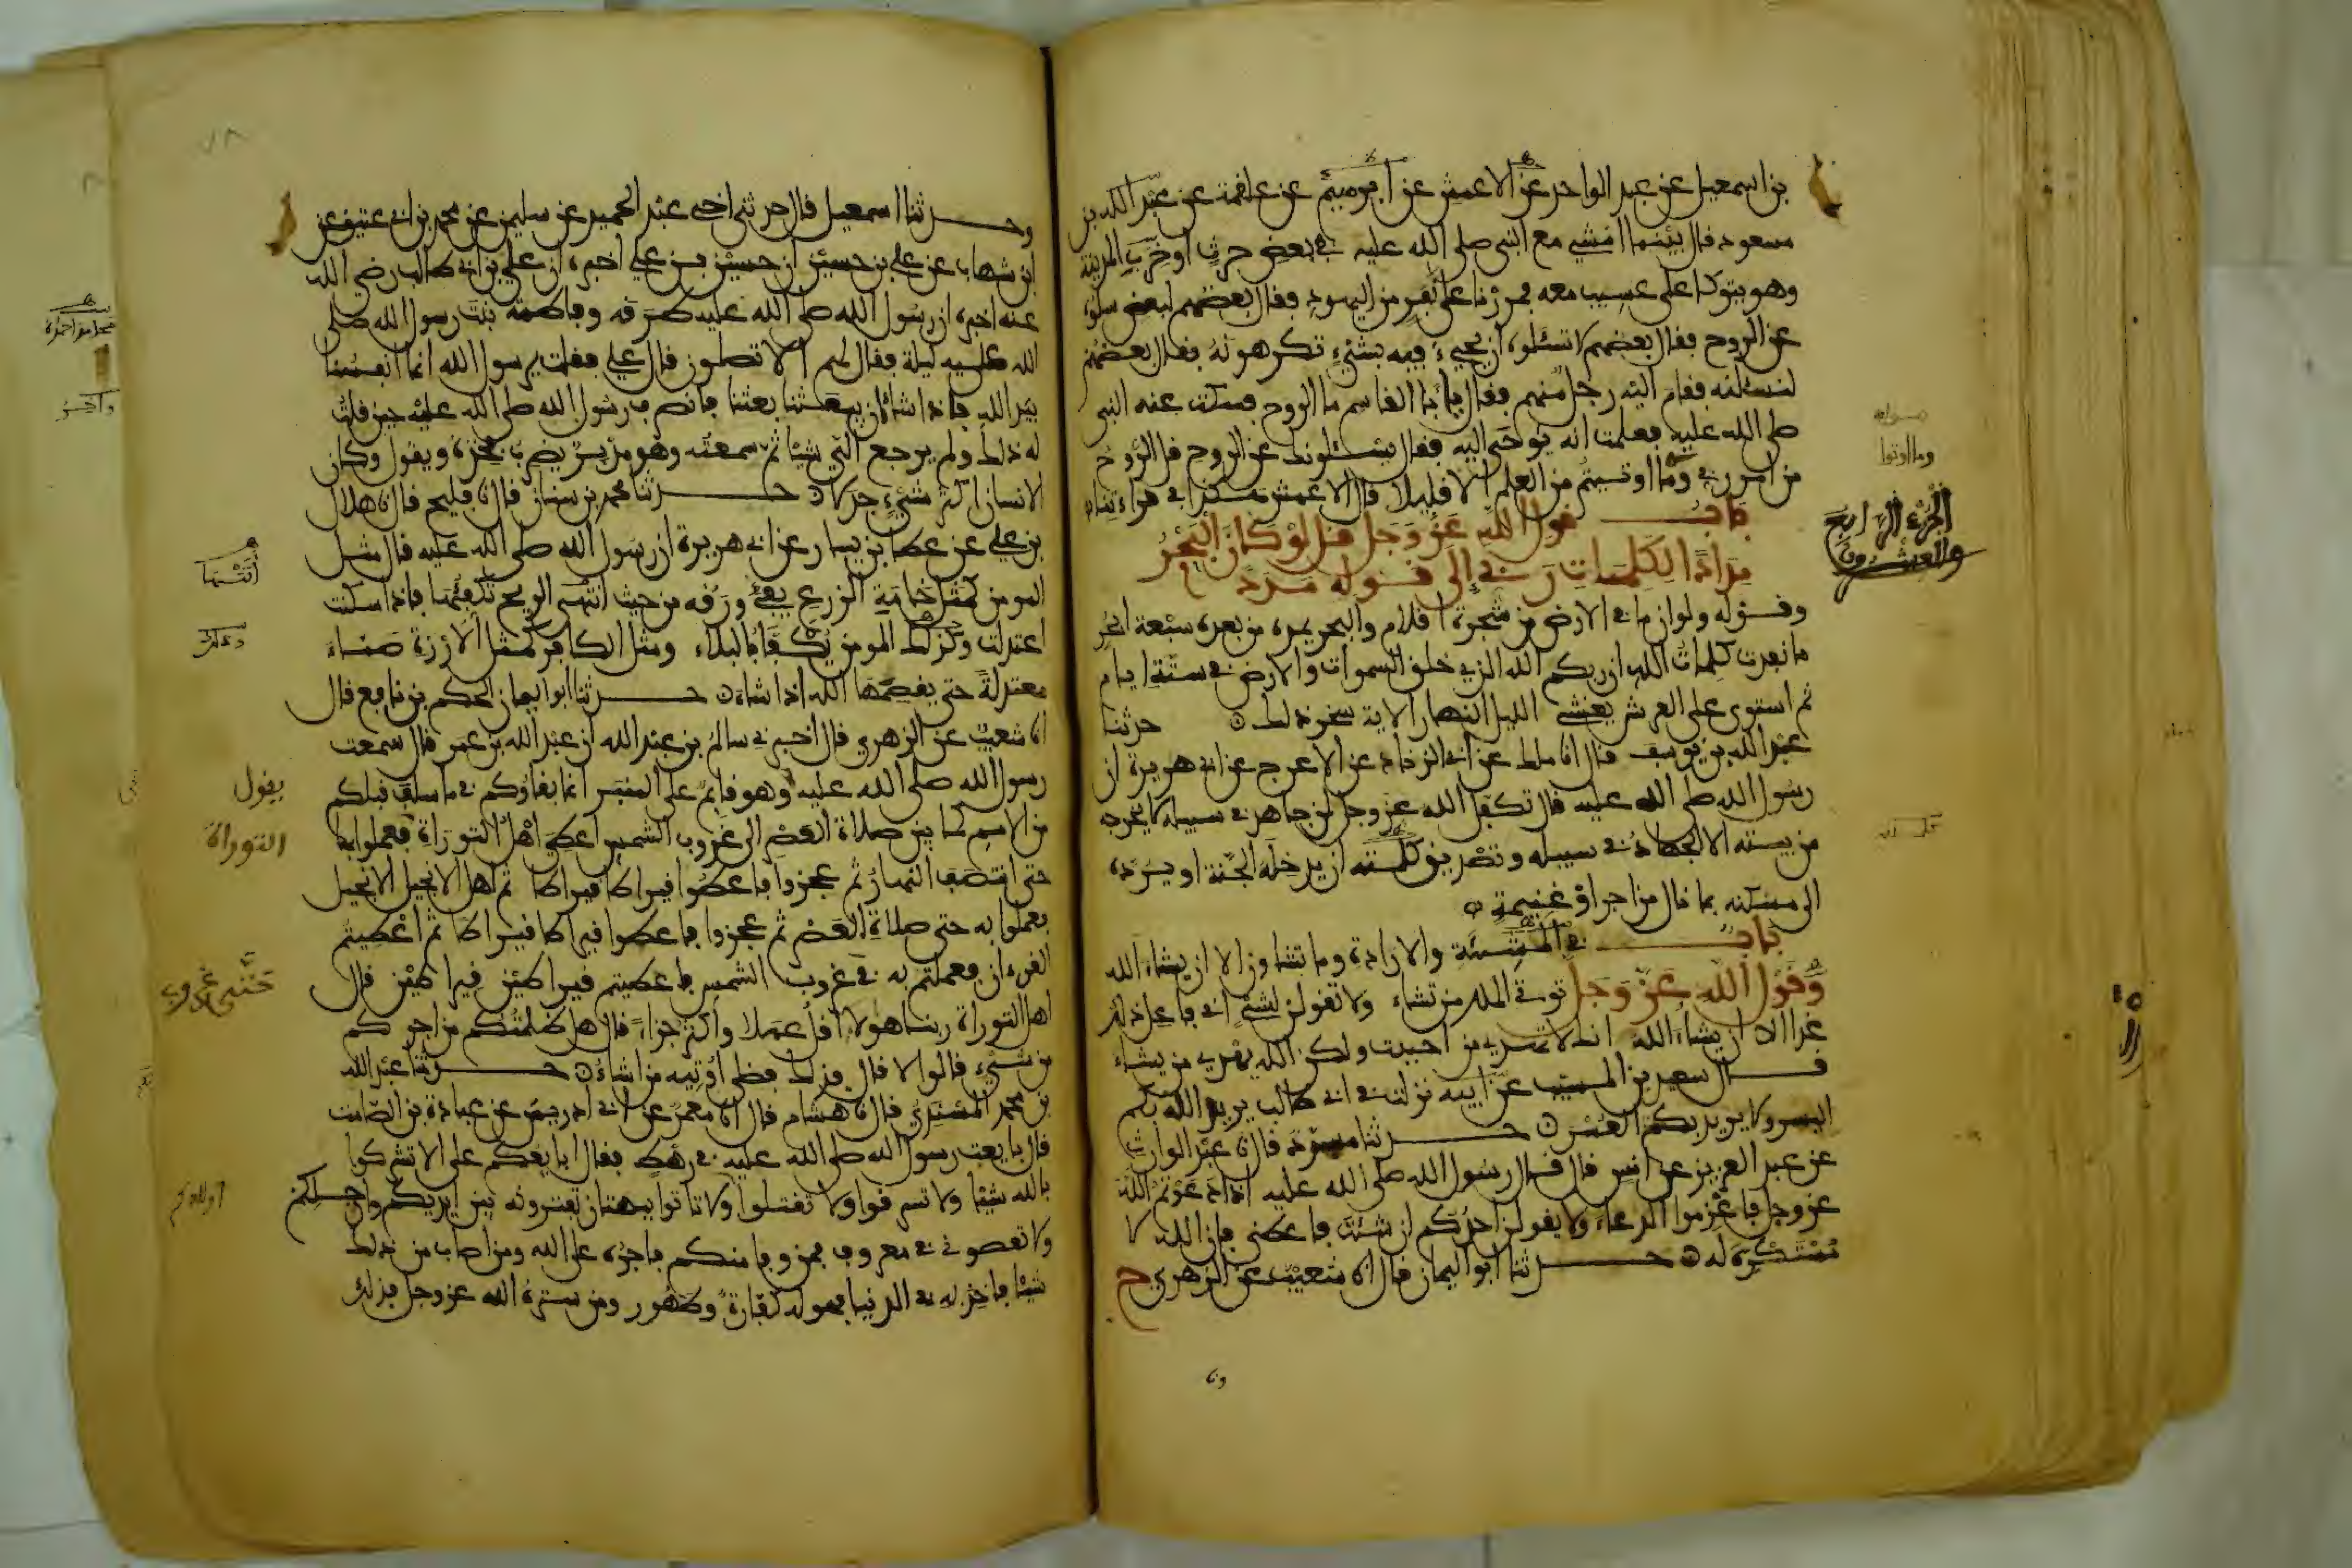 بن اسمعيل عن عبد الواحد عن الاعمش عن ابرهيم عن علقمة عن عبد الله بن
مسعود قال بينما امشي مع النبي صلى الله عليه في بعض حرث او خرب المدينة
وهو يتوكا على عسيب معه فمررنا على نفر من اليهود فقال بعضهم لبعض سلوه
عن الروح فقال بعضهم لا تسئلوه ان يجيء فيه بشيء تكرهونه فقال بعضهم
لنسئلنه فقام اليه رجل منهم فقال يا با القاسم ما الروح فسكت عنه النبي
صلى الله عليه فعلمت انه يوحى اليه فقال يسئلونك عن الروح قل الروح
من امر ربي وما اوتيتم من العلم الا قليلا قال الاعمش هكذا في قراءتنا
باب قول الله عز وجل قل لو كان البحر
مدادا لكلمات ربي الى قوله مددا
وقوله ولو ان ما في الارض من شجرة اقلام والبحر يمده من بعده سبعة ابحر
ما نفدت كلمات الله ان ربكم الله الذي خلق السموات والارض في ستة ايام
ثم استوى على العرش يغشي الليل النهار الاية سخر ذلل حدثنا
عبد الله بن يوسف قال انا ملك عن ابي الزناد عن الاعرج عن ابي هريرة ان
رسول الله صلى الله عليه قال تكفل الله عز وجل لمن جاهد في سبيله لا يخرجه
من بيته الا الجهاد في سبيله وتصديق كلمته ان يدخله الجنة او يرده
الى مسكنه بما نال من اجر او غنيمة
باب في المشيئة والارادة وما تشاون الا ان يشاء الله
وقول الله عز وجل توتي الملك من تشاء ولا تقولن لشيء اني فاعل ذلك
غدا الا ان يشاء الله انك لا تهدي من احببت ولكن الله يهدي من يشاء
قال سعيد بن المسيب عن ابيه نزلت في ابي طالب يريد الله بكم
اليسر ولا يريد بكم العسر حدثنا مسدد قال نا عبد الوارث
عن عبد العزيز عن انس قال قال رسول الله صلى الله عليه اذا دعوتم الله
عز وجل فاعزموا الدعاء ولا يقولن احدكم ان شئت فاعطني فان الله لا
مستكره له حدثنا ابو اليمان قال انا شعيب عن الزهري ح
وما اوتوا
الجزء الرابع
والعشرون
وحدثنا اسمعيل قال حدثني اخي عبد الحميد عن سليمن عن محمد بن ابي عتيق عن
ابن شهاب عن علي بن حسين ان حسين بن علي اخبره ان علي بن ابي طالب رضي الله
عنه اخبره ان رسول الله صلى الله عليه طرقه وفاطمة بنت رسول الله صلى
الله عليه ليلة فقال لهم الا تصلون قال علي فقلت يرسول الله انما انفسنا
بيد الله فاذا شاء ان يبعثنا بعثنا فانصرف رسول الله صلى الله عليه حين قلت
له ذلك ولم يرجع الي شيئا ثم سمعته وهو مدبر يضرب فخذه ويقول وكان
الانسان اكثر شيء جدلا حدثنا محمد بن سنان قال نا فليح قال نا هلال
بن علي عن عطا بن يسار عن ابي هريرة ان رسول الله صلى الله عليه قال مثل
المومن كمثل خامة الزرع يفيء ورقه من حيث اتتها الريح تكفئها فاذا سكنت
اعتدلت وكذلك المومن يكفا بالبلاء ومثل الكافر كمثل الارزة صماء
معتدلة حتى يقصمها الله اذا شاء حدثنا ابو اليمان الحكم بن نافع قال
انا شعيب عن الزهري قال اخبرني سالم بن عبد الله ان عبد الله بن عمر قال سمعت
رسول الله صلى الله عليه وهو قايم على المنبر انما بقاوكم في ما سلف قبلكم
من الامم كما بين صلاة العصر الى غروب الشمس اعطي اهل التوراة فعملوا بها
حتى انتصف النهار ثم عجزوا فاعطوا قيراطا قيراطا ثم اهل الانجيل الانجيل
فعملوا به حتى صلاة العصر ثم عجزوا فاعطوا قيراطا قيراطا ثم اعطيتم
القرءان فعملتم به في غروب الشمس فاعطيتم قيراطين قيراطين قال
اهل التوراة ربنا هولا اقل عملا واكثر جزاء قال هل ظلمتكم من اجركم
من شيء قالوا لا قال فذلك فضلي اوتيه من اشاء حدثنا عبد الله
بن محمد المسندي قال نا هشام قال انا معمر عن ابي ادريس عن عبادة بن الصامت
قال بايعت رسول الله صلى الله عليه في رهط فقال ابايعكم على الا تشركوا
بالله شيئا ولا تسرقوا ولا تقتلوا ولا تاتوا ببهتان تفترونه بين ايديكم وارجلكم
ولا تعصوني في معروف فمن وفا منكم فاجره على الله ومن اصاب من ذلك
شيئا فاخذ به في الدنيا فهو له كفارة وطهور ومن ستره الله عز وجل فذلك
يقول
التوراة
حتى غروب
اولادكم